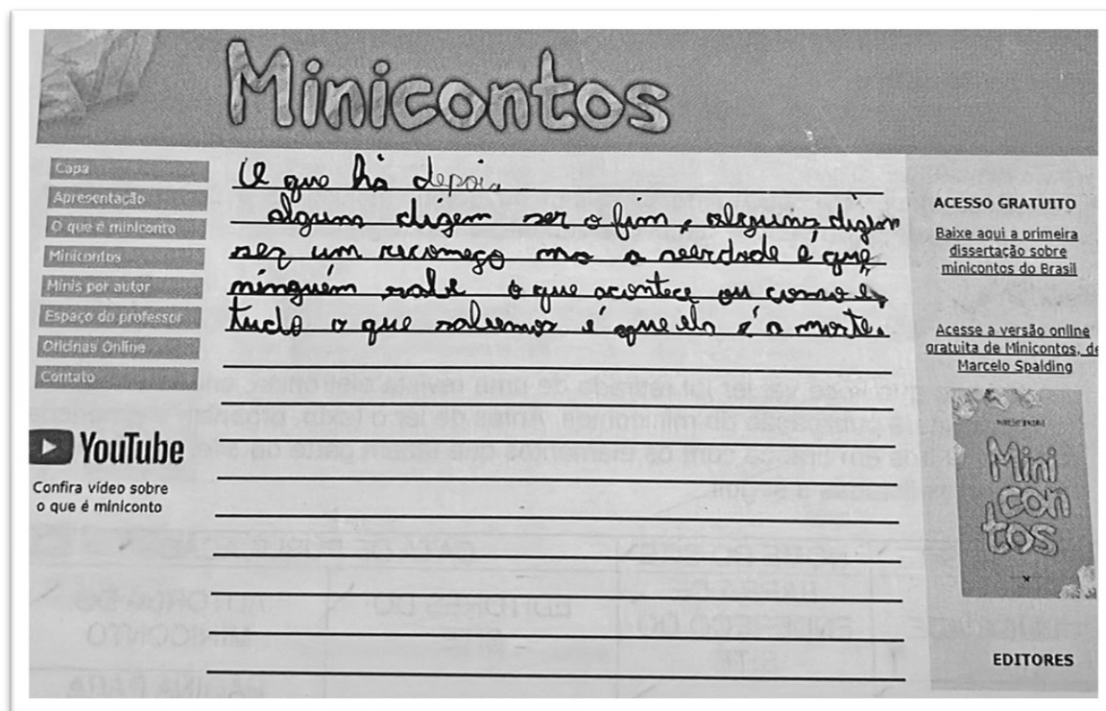 Minicontos
Capa
Apresentação
O que é miniconto
Minicontos
Minis por autor
Espaço do professor
Oficinas Online
Contato
YouTube
Confira vídeo sobre
o que é miniconto
O que há depois
alguns dizem ser o fim, alguns dizem
ser um recomeço mas a verdade é que
ninguém sabe o que acontece ou como é,
tudo o que sabemos é que ela é a morte.
ACESSO GRATUITO
Baixe aqui a primeira
dissertação sobre
minicontos do Brasil
Acesse a versão online
gratuita de Minicontos, de
Marcelo Spalding
Mini
con
tos
EDITORES